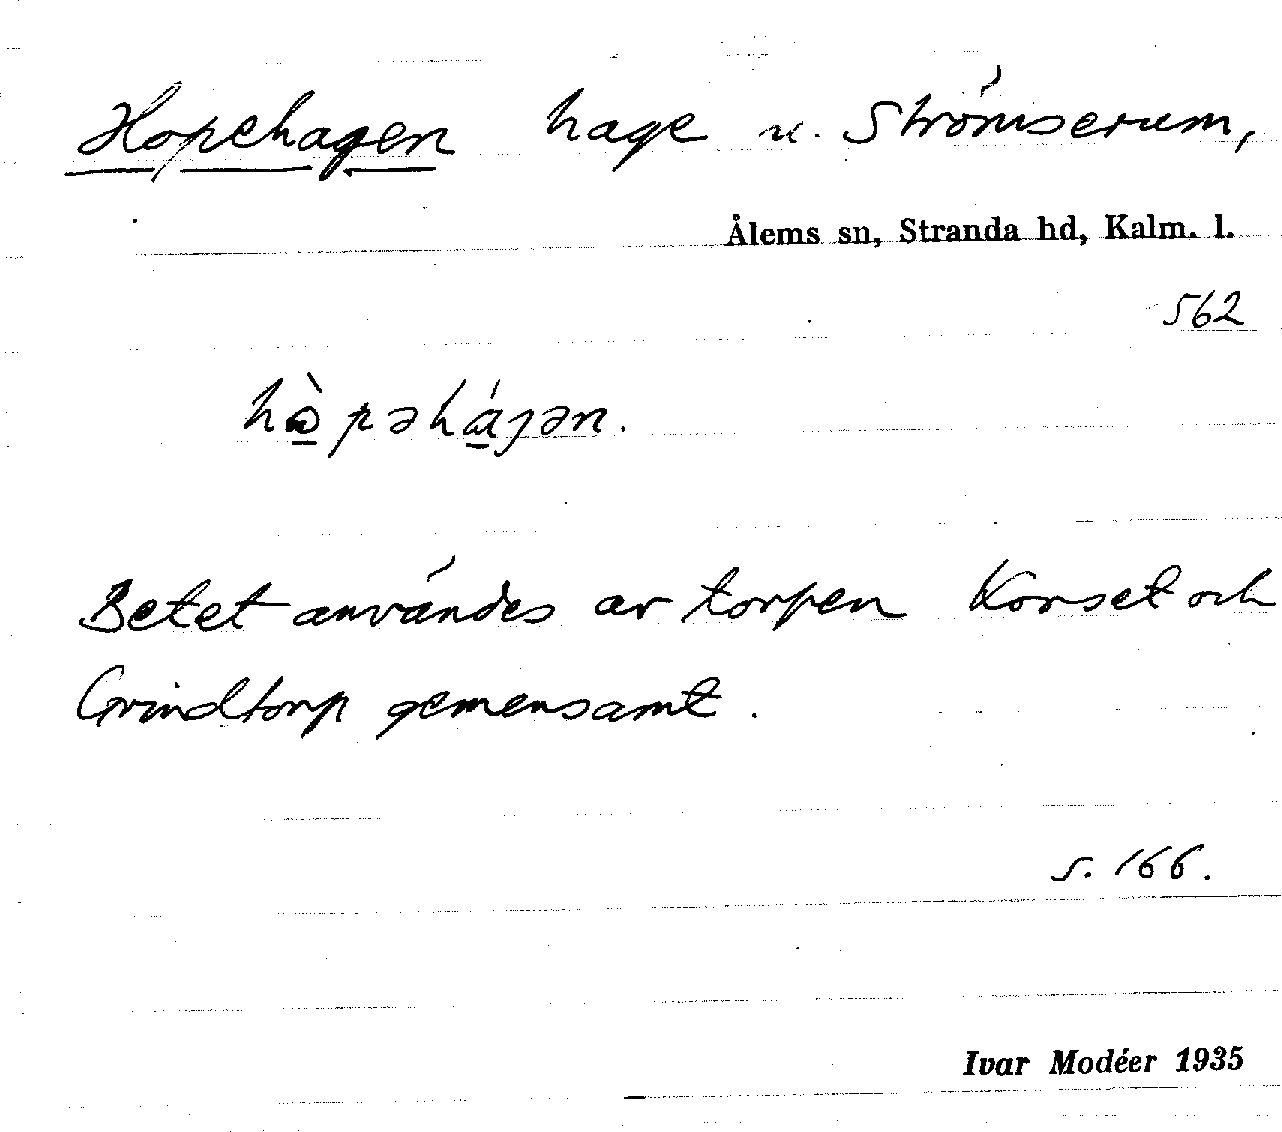 Hopehagen hage u. Strömserum,
Ålems sn, Stranda hd, Kalm. l.
562
Betet användes av torpen Korset och
Grindtorp gemensamt.
s. 166.
Ivar Modéer 1935